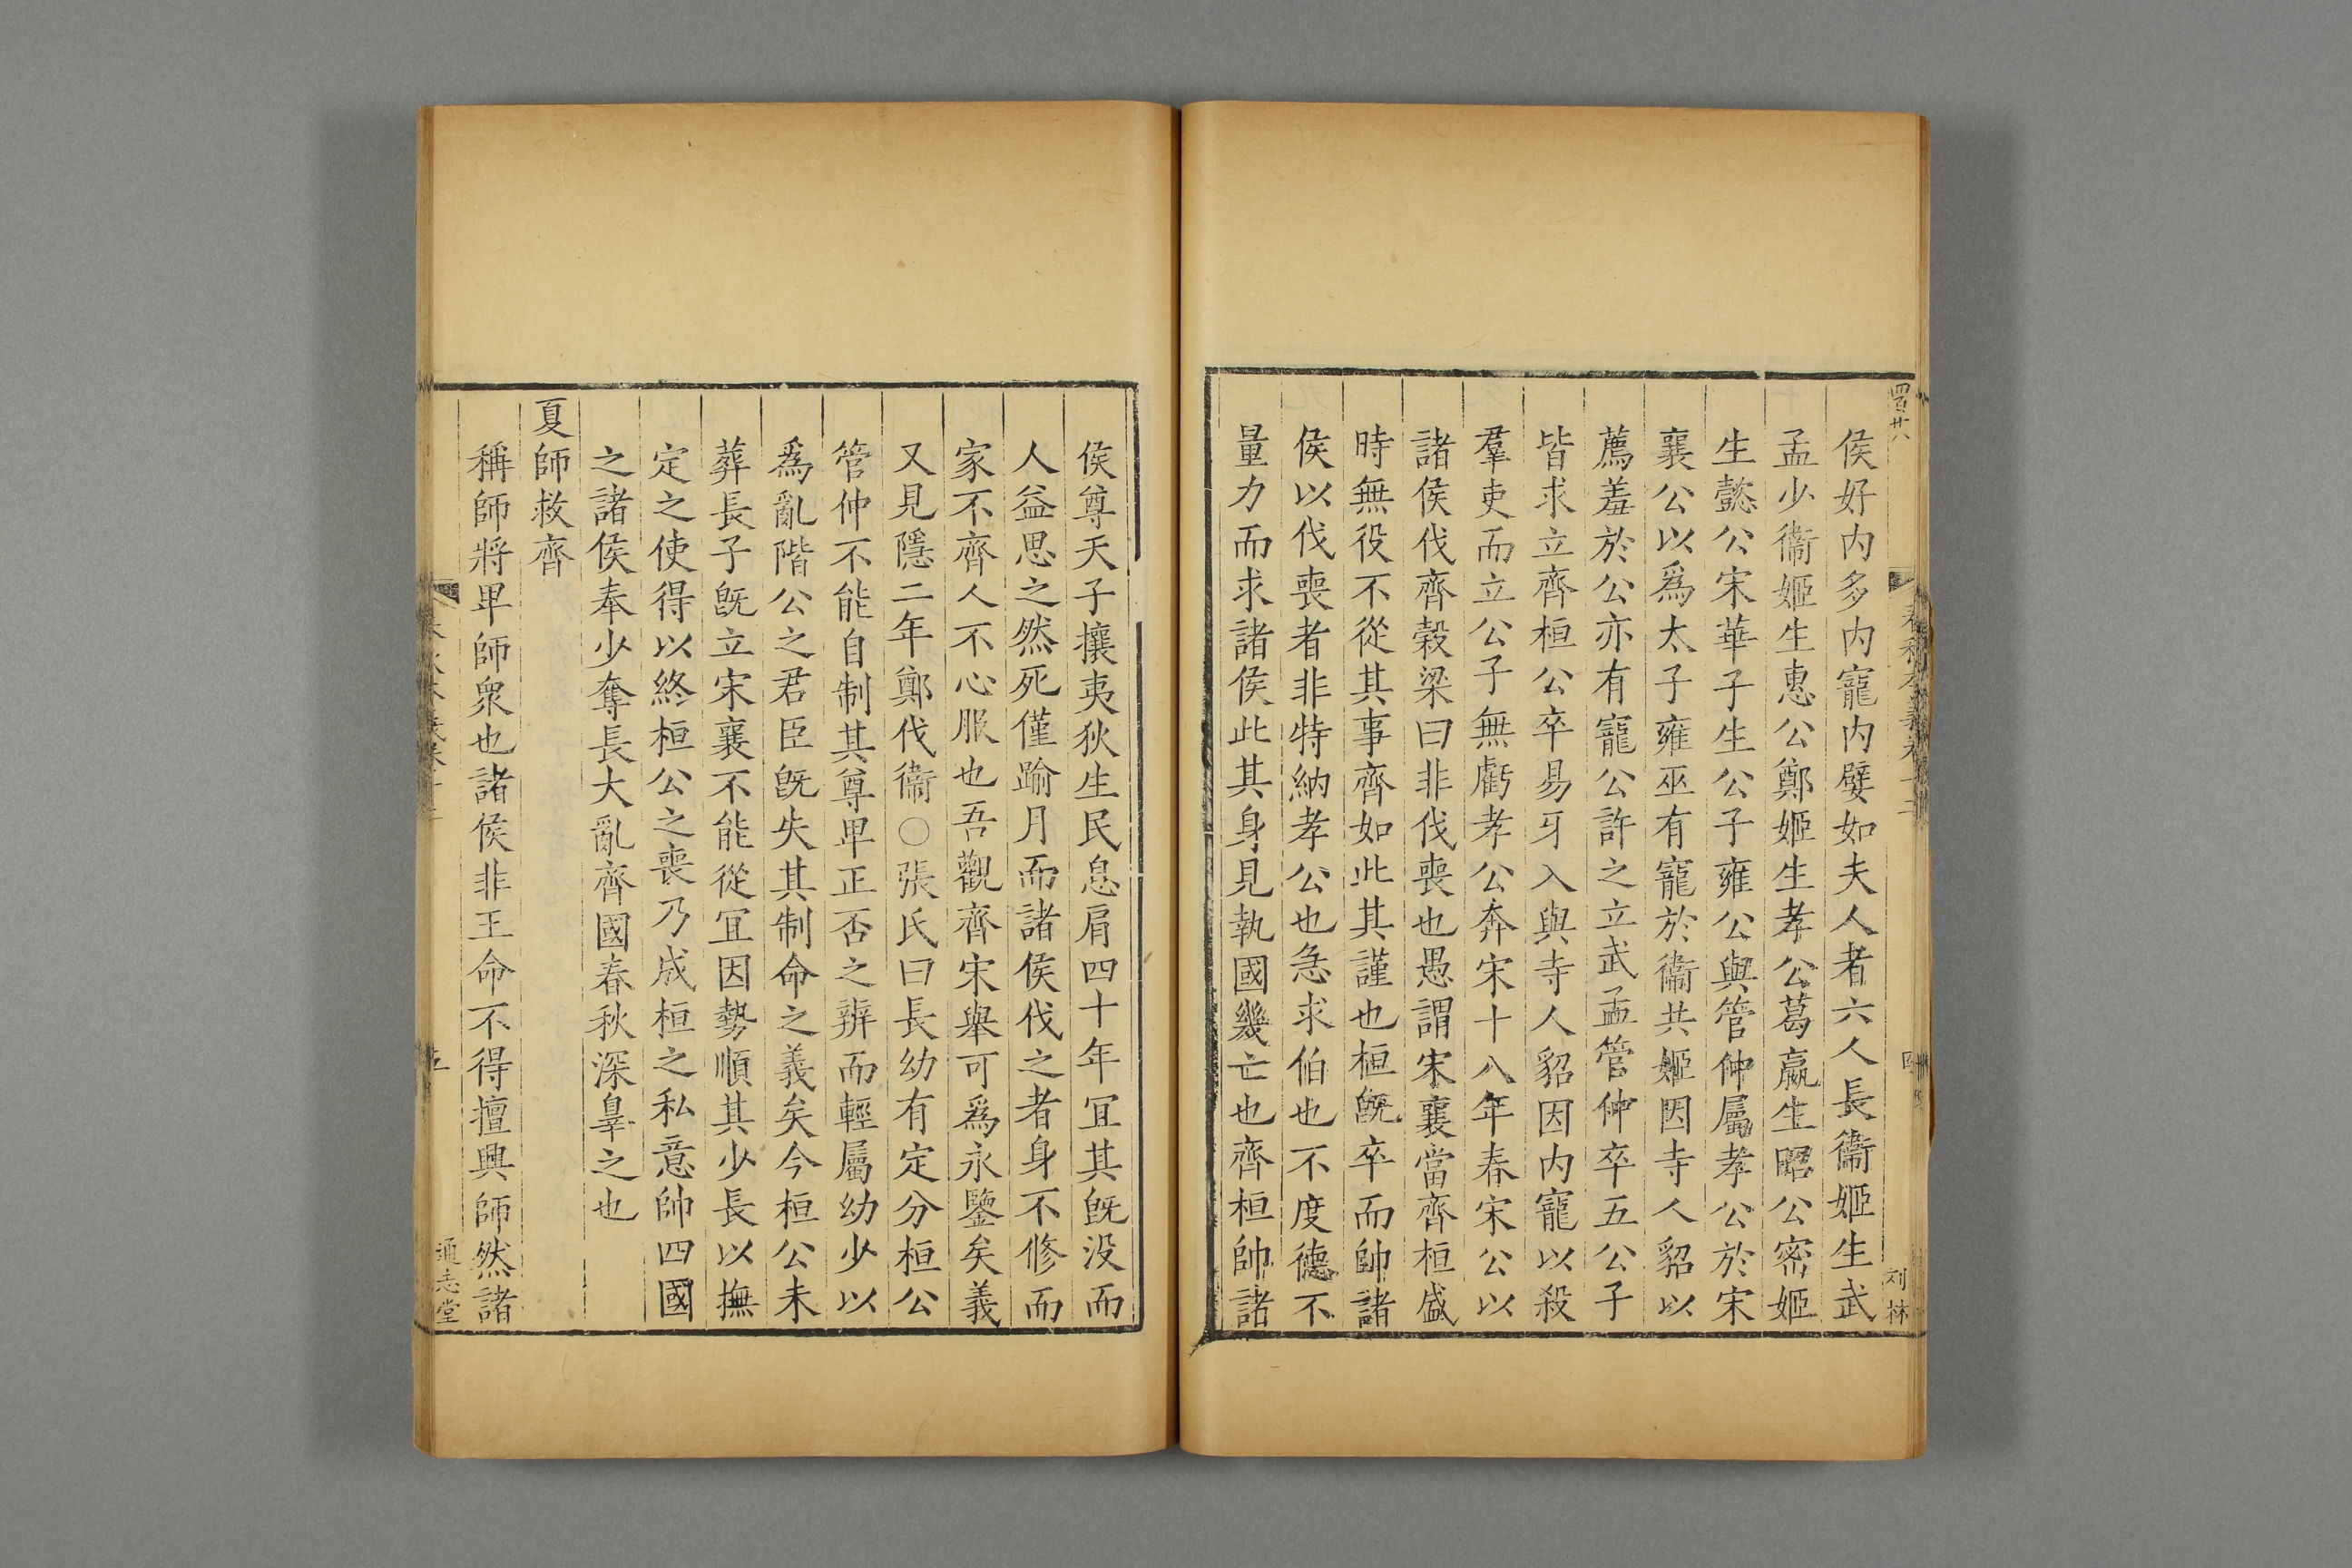 侯好内多内寵内嬖如夫人者六人長衞姬生武
孟少衞姬生惠公鄭姬生孝公葛嬴生昭公密姬
生懿公宋華子生公子雍公與管仲屬孝公於宋
襄公以爲太子雍巫有寵於衞共姬因寺人貂以
薦羞於公亦有寵公許之立武孟管仲卒五公子
皆求立齊桓公卒易牙入與寺人貂因内寵以殺
羣吏而立公子無虧孝公奔宋十八年春宋公以
諸侯伐齊穀梁曰非伐喪也愚謂宋襄當齊桓盛
時無役不從其事齊如此其謹也桓旣卒而帥諸
侯以伐喪者非特納孝公也急求伯也不度德不
量力而求諸侯此其身見執國幾亡也齊桓帥諸
侯尊天子攘夷狄生民息肩四十年冝其旣没而
人益思之然死僅踰月而諸侯伐之者身不修而
家不齊人不心服也吾觀齊宋舉可爲永鑒矣義
又見隱二年鄭伐衞○張氏曰長幼有定分桓公
管仲不能自制其尊卑正否之辨而輕屬幼少以
爲亂階公之君臣旣失其制命之義矣今桓公未
葬長子旣立宋襄不能從冝因勢順其少長以撫
定之使得以終桓公之喪乃成桓之私意帥四國
之諸侯奉少奪長大亂齊國春秋深辠之也
夏師救齊
稱師將卑師衆也諸侯非王命不得擅興師然諸
通志堂